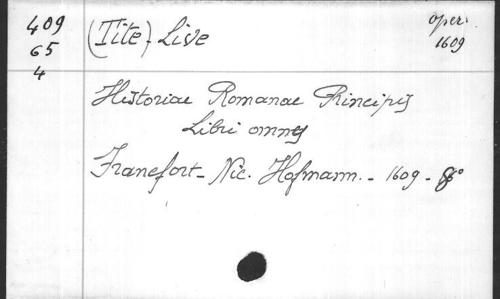 409
65
4
(Tite) - Live
oper.
1609
Historiae Romanae Principis
Libri omnes
Francfort - Nic. Hofmann. - 1609 - 8°